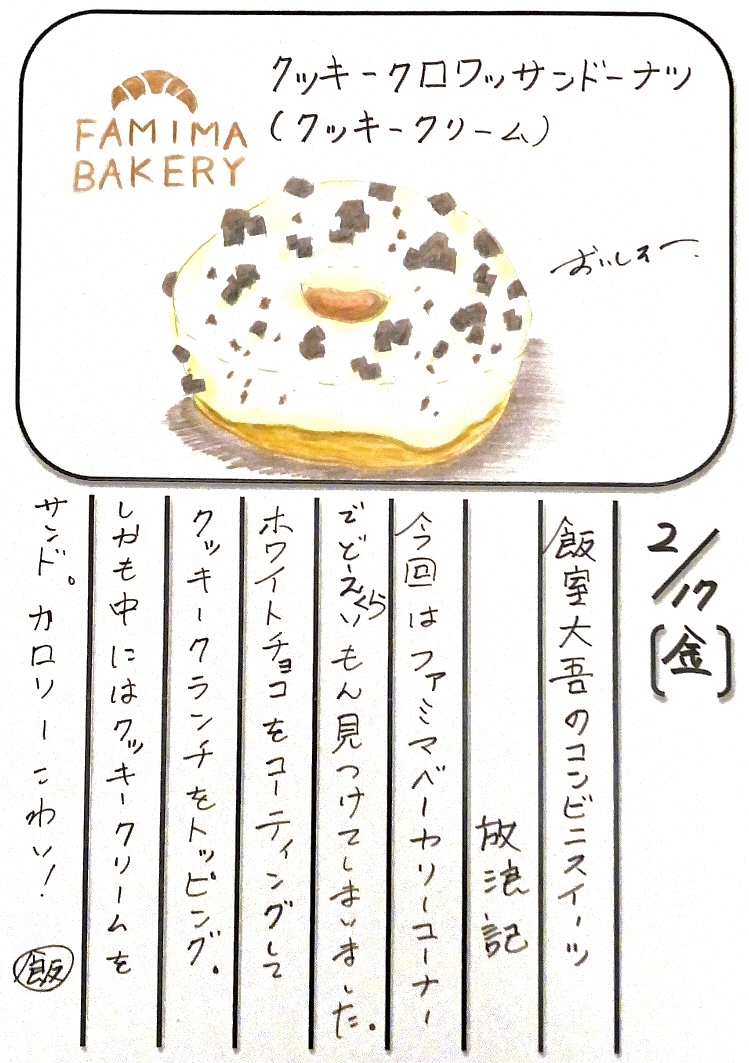 FAMIMA
BAKERY
クッキークロワッサンドーナツ
(クッキークリーム)
おいしスー。
2/17(金)
飯室大吾のコンビニスイーツ
放浪記
今回はファミマベーカリーコーナー
でどーえくらいもん見つけてしまいました。
ホワイトチョコをコーティングして
クッキークランチをトッピング。
しかも中にはクッキークリームを
サンド。カロリーこわい！
飯